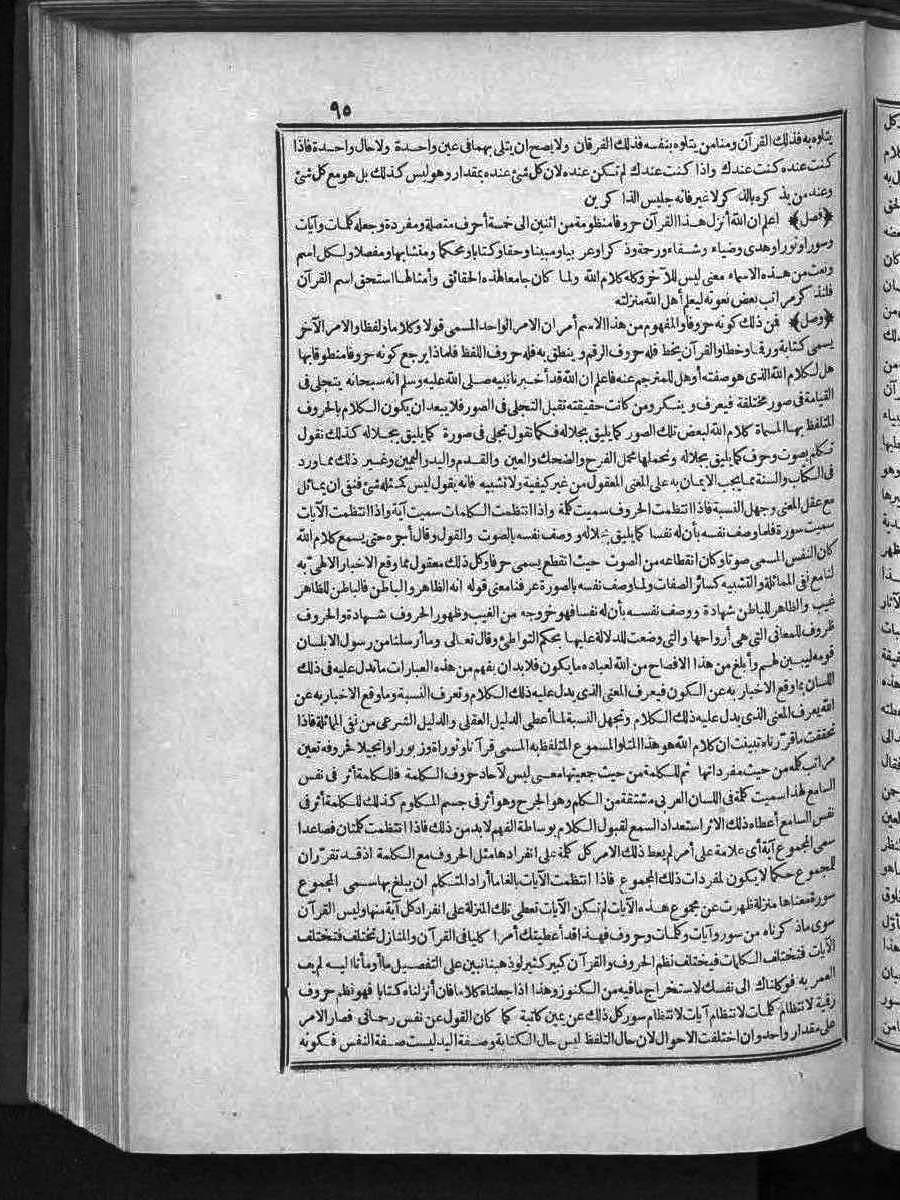 ٩٥
يتلوه به فذلك القرآن ومنا من يتلوه بنفسه فذلك الفرقان ولا يصح ان يتلى بهما فى عين واحدة ولا حال واحدة فاذا
كنت عنده كنت عندك واذا كنت عندك لم تكن عنده لان كل شئ عنده بمقدار وهو ليس كذلك بل هو مع كل شئ
وعند من يذكره بالذكر لا غير فانه جليس الذاكرين
﴿فصل﴾ اعلم ان الله أنزل هذا القرآن حروفا منظومة من اثنين الى خمسة أحرف متصلة ومفردة وجعله كلمات وآيات
وسورا ونورا وهدى وضياء وشفاء ورحمة وذكرا وعربيا ومبينا وحقا وكتابا ومحكما ومتشابها ومفصلا ولكل اسم
ونعت من هذه الاسماء معنى ليس للآخر وكله كلام الله ولما كان جامعا لهذه الحقائق وأمثالها استحق اسم القرآن
فلنذكر مراتب بعض نعوته ليعلم أهل الله منزلته
﴿وصل﴾ فمن ذلك كونه حروفا والمفهوم من هذا الاسم أمران الامر الواحد المسمى قولا وكلاما ولفظا والامر الآخر
يسمى كتابة ورقما وخطا والقرآن يخط فله حروف الرقم وينطق به فله حروف اللفظ فلماذا يرجع كونه حروفا منطوقا بها
هل لكلام الله الذى هو صفته أو هل للمترجم عنه فاعلم ان الله قد أخبرنا نبيه صلى الله عليه وسلم انه سبحانه يتجلى فى
القيامة فى صور مختلفة فيعرف وينكر ومن كانت حقيقته تقبل التجلى فى الصور فلا يبعد ان يكون الكلام بالحروف
المتلفظ بها المسماة كلام الله لبعض تلك الصور كما يليق بجلاله فكما نقول تجلى فى صورة كما يليق بجلاله كذلك نقول
تكلم بصوت وحرف كما يليق بجلاله ونحملها محمل الفرح والضحك والعين والقدم واليد واليمين وغير ذلك مما ورد
فى الكتاب والسنة مما يجب الايمان به على المعنى المعقول من غير كيفية ولا تشبيه فانه يقول ليس كمثله شئ فنفى ان يماثل
مع عقل المعنى وجهل النسبة فاذا انتظمت الحروف سميت كلمة واذا انتظمت الكلمات سميت آية واذا انتظمت الآيات
سميت سورة فلما وصف نفسه بأن له نفسا كما يليق بجلاله ووصف نفسه بالصوت والقول وقال أجره حتى يسمع كلام الله
كان النفس المسمى صوتا وكان انقطاعه من الصوت حيث انقطع يسمى حرفا وكل ذلك معقول مما وقع الاخبار الالهىّ به
لنا مع نفى المماثلة والتشبيه كسائر الصفات ولما وصف نفسه بالصورة عرفنا معنى قوله انه الظاهر والباطن فالباطن للظاهر
غيب والظاهر للباطن شهادة ووصف نفسه بأن له نفسا فهو خروجه من الغيب وظهور الحروف شهادة والحروف
ظروف للمعانى التى هى أرواحها والتى وضعت للدلالة عليها بحكم التواطئ وقال تعالى وما أرسلنا من رسول الا بلسان
قومه ليبين لهم وأبلغ من هذا الافصاح من الله لعباده ما يكون فلا بد ان يفهم من هذه العبارات ما تدل عليه فى ذلك
اللسان بما وقع الاخبار به عن الكون فيعرف المعنى الذى يدل عليه ذلك الكلام وتعرف النسبة وما وقع الاخبار به عن
الله يعرف المعنى الذى يدل عليه ذلك الكلام وتجهل النسبة لما أعطى الدليل العقلى والدليل الشرعى من نفى المماثلة فاذا
تحققت ما قررناه تبينت ان كلام الله هو هذا المتلو المسموع المتلفظ به المسمى قرآنا وتوراة وزبورا وانجيلا فحروفه تعين
مراتب كلمه من حيث مفرداتها ثم للكلمة من حيث جمعيتها معنى ليس لآحاد حروف الكلمة فللكلمة أثر فى نفس
السامع لهذا سميت كلمة فى اللسان العربى مشتقة من الكلم وهو الجرح وهو أثر فى جسم المكلوم كذلك للكلمة أثر فى
نفس السامع أعطاه ذلك الاثر استعداد السمع لقبول الكلام بوساطة الفهم لا بد من ذلك فاذا انتظمت كلمتان فصاعدا
سمى المجموع آية أى علامة على أمر لم يعط ذلك الامر كل كلمة على انفرادها مثل الحروف مع الكلمة اذ قد تقرّر ان
للمجموع حكما لا يكون لمفردات ذلك المجموع فاذا انتظمت الآيات بالغا ما أراد المتكلم ان يبلغ بها سمى المجموع
سورة معناها منزلة ظهرت عن مجموع هذه الآيات لم تكن الآيات تعطى تلك المنزلة على انفراد كل آية منها وليس القرآن
سوى ما ذكرناه من سور وآيات وكلمات وحروف فهذا قد أعطيتك أمرا كليا فى القرآن والمنازل تختلف فتختلف
الآيات فتختلف الكلمات فيختلف نظم الحروف والقرآن كبير كثير لو ذهبنا نبين على التفصيل ما أومأنا اليه لم يف
العمر به فوكلناك الى نفسك لاستخراج ما فيه من الكنوز وهذا اذا جعلناه كلاما فان أنزلناه كتابا فهو نظم حروف
رقمية لانتظام كلمات لانتظام آيات لانتظام سور كل ذلك عن يمين كاتبة كما كان القول عن نفس رحمانى فصار الامر
على مقدار واحد وان اختلفت الاحوال لان حال التلفظ ليس حال الكتابة وصفة اليد ليست صفة النفس فكونه